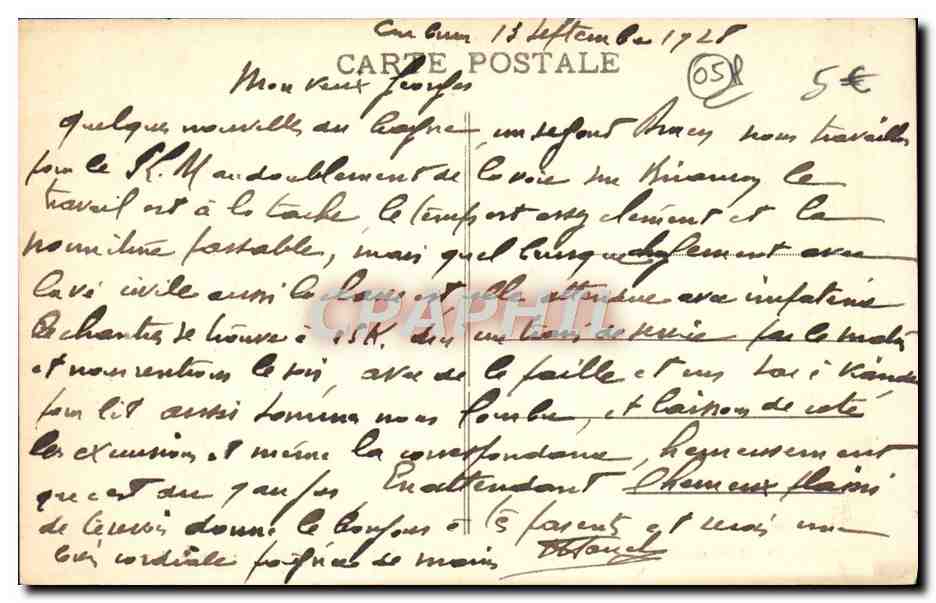 13 Septembre 1928
CARTE POSTALE
Mon vieux Georges
058
5€
quelques nouvelles du bagne, un segond nous travaillons
pour le P.L.M au doublement de la voie sur le
travail est à la tache le temps est assez clément et la
nourriture passable, mais quel brusque changement avec
la vie civile aussi la classe est elle attendue avec impatience
Le chantier se trouve à 15K. un train de service par le matin
et nous rentrons le soir, avec de la paille et un sac à viande
pour lit aussi sommes nous et laissons de coté
les excursions et même la correspondance, heureusement
que c'est du En attendant l'heureux plaisir
de te revoir donne le bonjour à tes parents et reçois une
très cordiale poignée de main
CPAPHIL